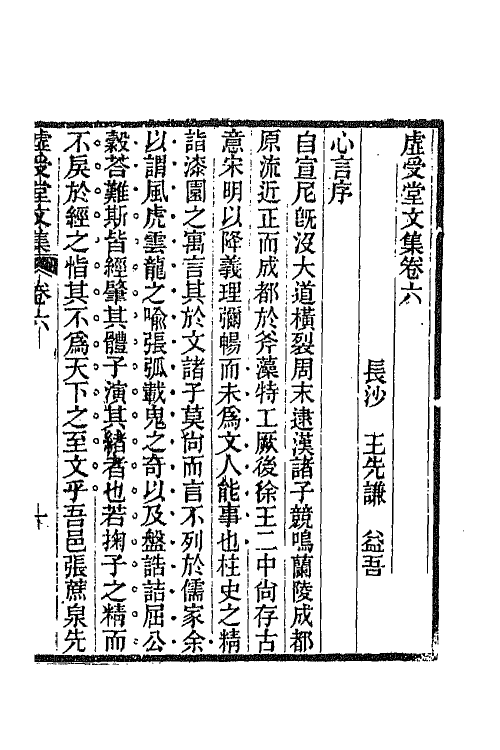 虛受堂文集卷六
長沙 王先謙 益吾
心言序
自宣尼旣沒大道橫裂周末逮漢諸子競鳴蘭陵成都
原流近正而成都於斧藻特工厥後徐王二中尙存古
意宋明以降義理彌暢而未爲文人能事也柱史之精
詣漆園之寓言其於文諸子莫尙而言不列於儒家余
以謂風虎雲龍之喻張弧載鬼之奇以及盤誥詰屈公
穀荅難斯皆經肇其體子演其緖者也若掬子之精而
不戾於經之恉其不爲天下之至文乎吾邑張蔗泉先
虛受堂文集 卷六 一